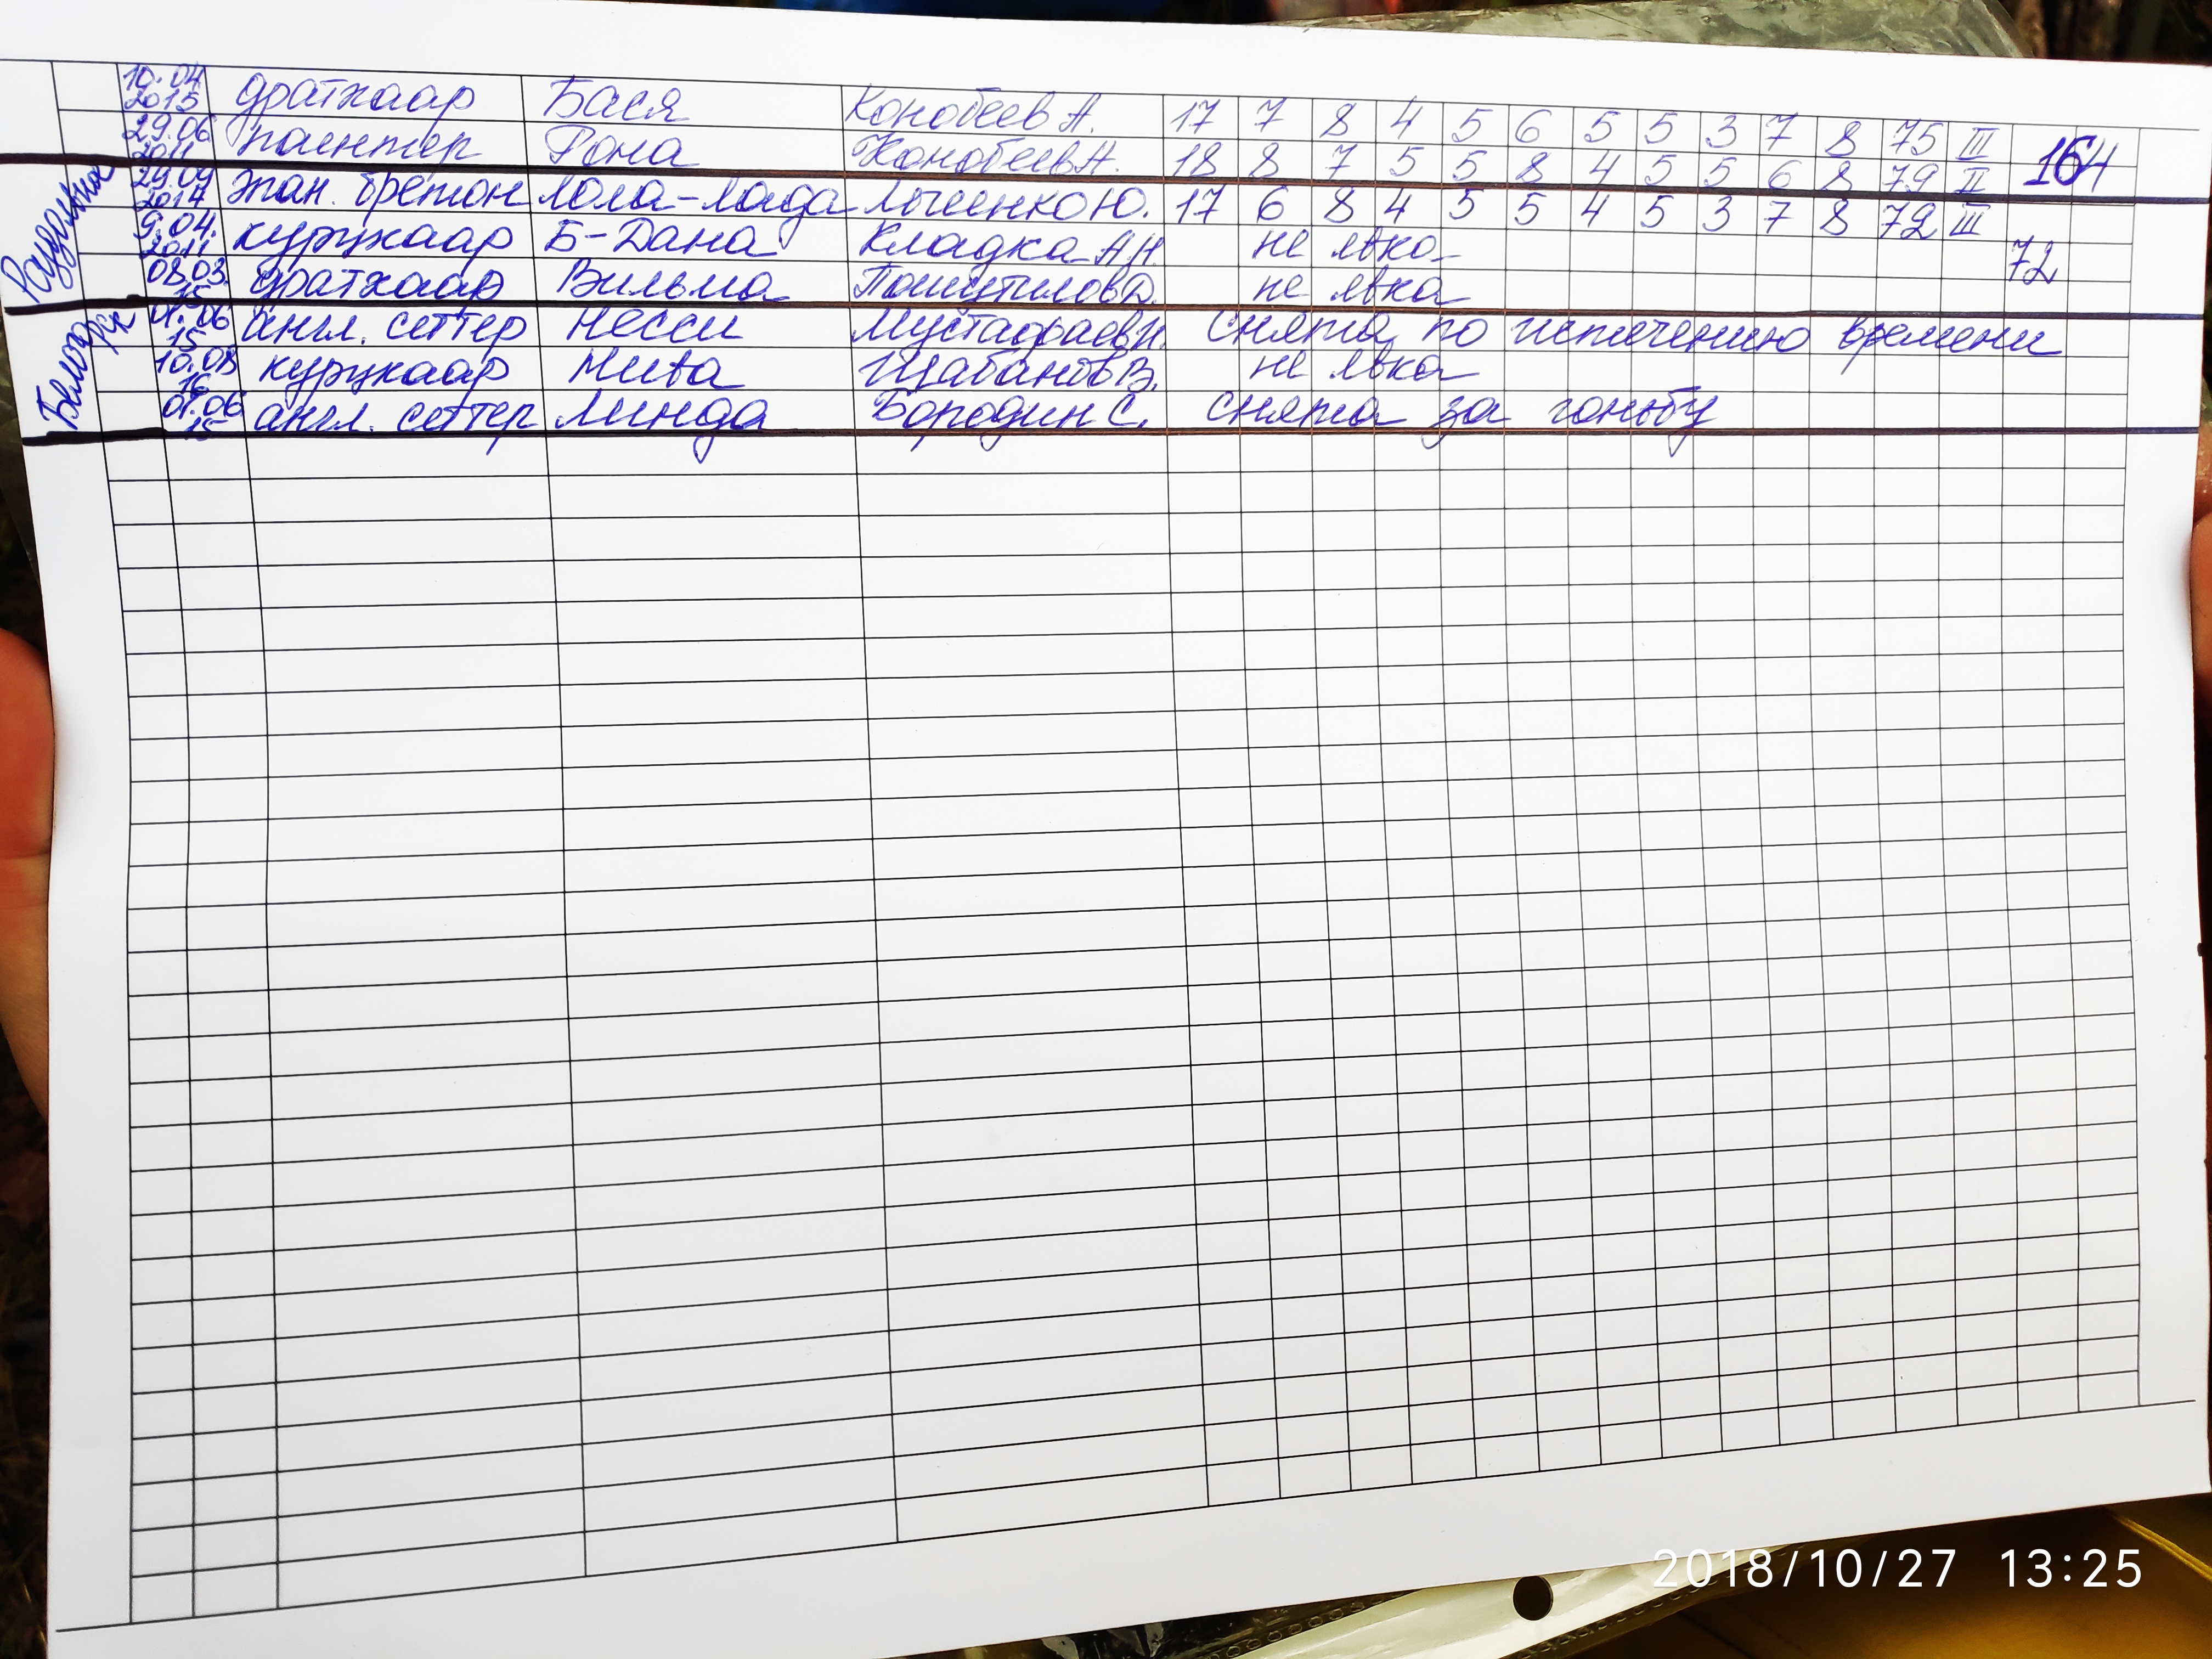 10.04 2015 дратхаар Бася Конобеев А. 17 7 8 4 5 6 5 5 3 7 8 75 III
29.06 2011 поинтер Рона Конобеев А. 18 8 7 5 5 8 4 5 5 6 8 79 II 164
Раздольная
29.09 2014 эпан. бретон Лола-Лада Лысенко Ю. 17 6 8 4 5 5 4 5 3 7 8 72 III
9.04. 2011 курцхаар Б-Дана Кладка А.Н. не явка 72
08.03. 15 дратхаар Вильма не явка
Белог рск
01.06 15 англ. сеттер Несси Мустафаев И. Снята по истечению времени
10.08 16 курцхаар Нива Шабанов В. не явка
01.06 15 англ. сеттер Линда Бородин С. Снята за гоньбу
2018/10/27 13:25